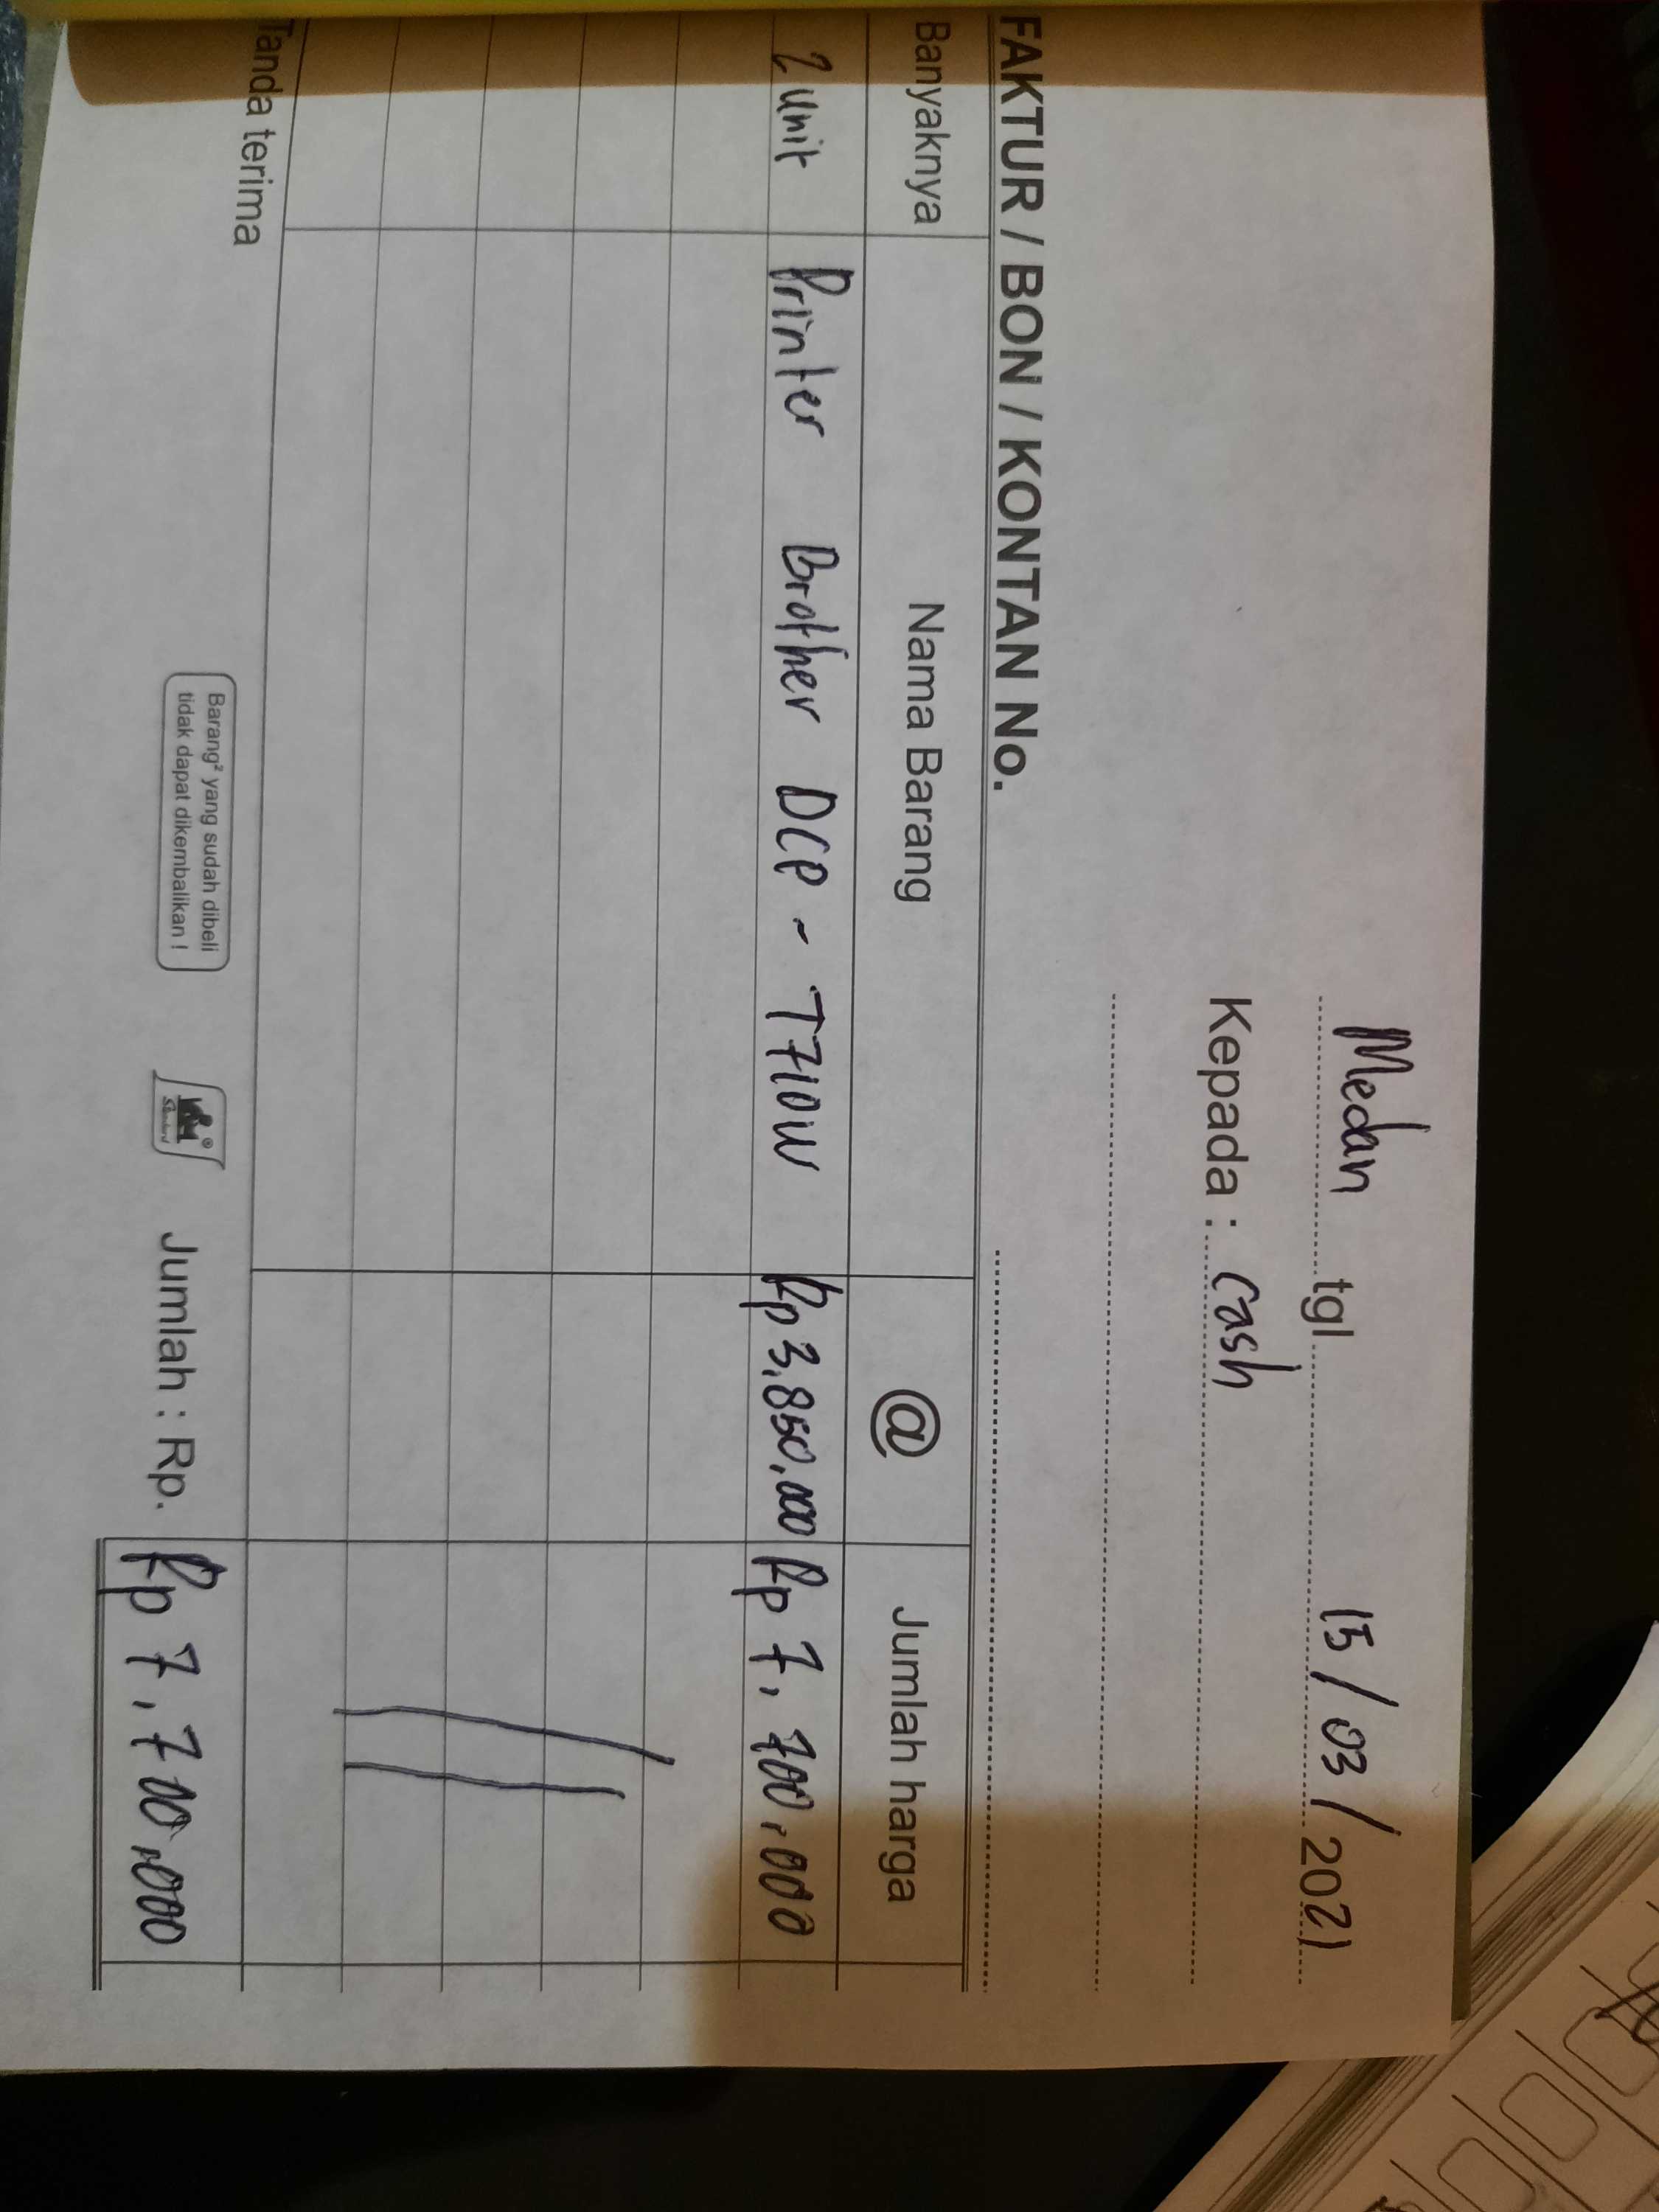 Medan tgl 15/03/2021
Kepada : Cash
FAKTUR / BON / KONTAN No.
Banyaknya Nama Barang @ Jumlah harga
2 unit Printer Brother DCP - T710W Rp 3.850.000 Rp 7.700.000
Tanda terima
Barang² yang sudah dibeli
tidak dapat dikembalikan !
Jumlah : Rp. Rp 7.700.000